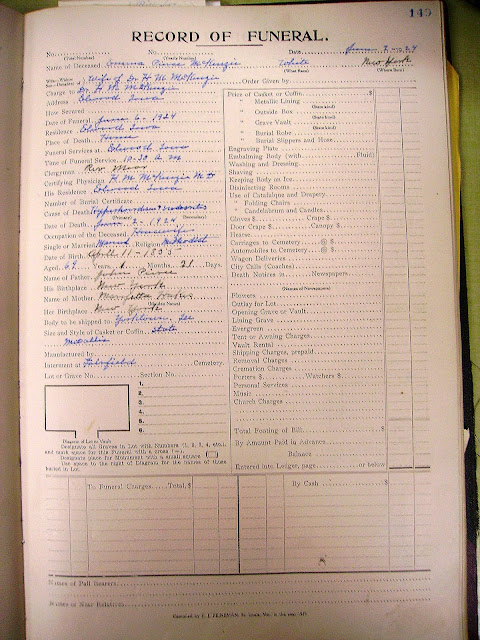 149
RECORD OF FUNERAL.
No. No. Date June 2 1924
(Total Number) (Yearly Number)
Name of Deceased Emma Pierce McKenzie White New York
(What Race) (Where Born)
Wife of Dr. H. M. McKenzie Order Given by
Charge to Dr. H. M. McKenzie
Address Oelwein Iowa
How Secured
Date of Funeral June 6 - 1924
Residence Oelwein Iowa
Place of Death Home
Funeral Services at Oelwein Iowa
Time of Funeral Service 10-30 A. M
Clergyman Rev
Certifying Physician H M McKenzie M D
His Residence Oelwein Iowa
Number of Burial Certificate
Cause of Death
(Primary) (Secondary)
Date of Death June - 2 - 1924
Occupation of the Deceased Housewife
Single or Married Married Religion Methodist
Date of Birth April 11 -
Aged Years 1 Months 21 Days.
Name of Father John Pierce
His Birthplace New York
Name of Mother
(Maiden Name)
Her Birthplace New York
Body to be shipped to
Size and Style of Casket or Coffin, state
Metallic
Manufactured by
Interment at Fairfield Cemetery.
Lot or Grave No. Section No.
1.
2.
3.
4.
5.
6.
Diagram of Lot or Vault.
Designate all Graves in Lot with Numbers (1, 2, 3, 4, etc.),
and mark space for this Funeral with a cross
Designate place for Monument with a small square
Use space to the right of Diagram for the names of those
buried in Lot.
Price of Casket or Coffin $
" Metallic Lining
(State kind)
" Outside Box
(State kind)
" Grave Vault
(State kind)
" Burial Robe
" Burial Slippers and Hose
Engraving Plate
Embalming Body (with Fluid)
Washing and Dressing
Shaving
Keeping Body on Ice
Disinfecting Rooms
Use of Catafalque and Drapery
" Folding Chairs
" Candelabrum and Candles
Gloves $ Crape $
Door Crape $ Canopy $
Hearse
Carriages to Cemetery @ $
Automobiles to Cemetery @ $
Wagon Deliveries
City Calls (Coaches)
Death Notices in Newspapers
(Names of Newspapers)
Flowers
Outlay for Lot
Opening Grave or Vault
Lining Grave
Evergreen
Tent or Awning Charges
Vault Rental
Shipping Charges, prepaid
Removal Charges
Cremation Charges
Porters $ Watchers $
Personal Services
Music
Church Charges
Total Footing of Bill $
By Amount Paid in Advance
Balance
Entered into Ledger, page or below
To Funeral Charges Total, $ By Cash $
Names of Pall Bearers
Names of Near Relatives